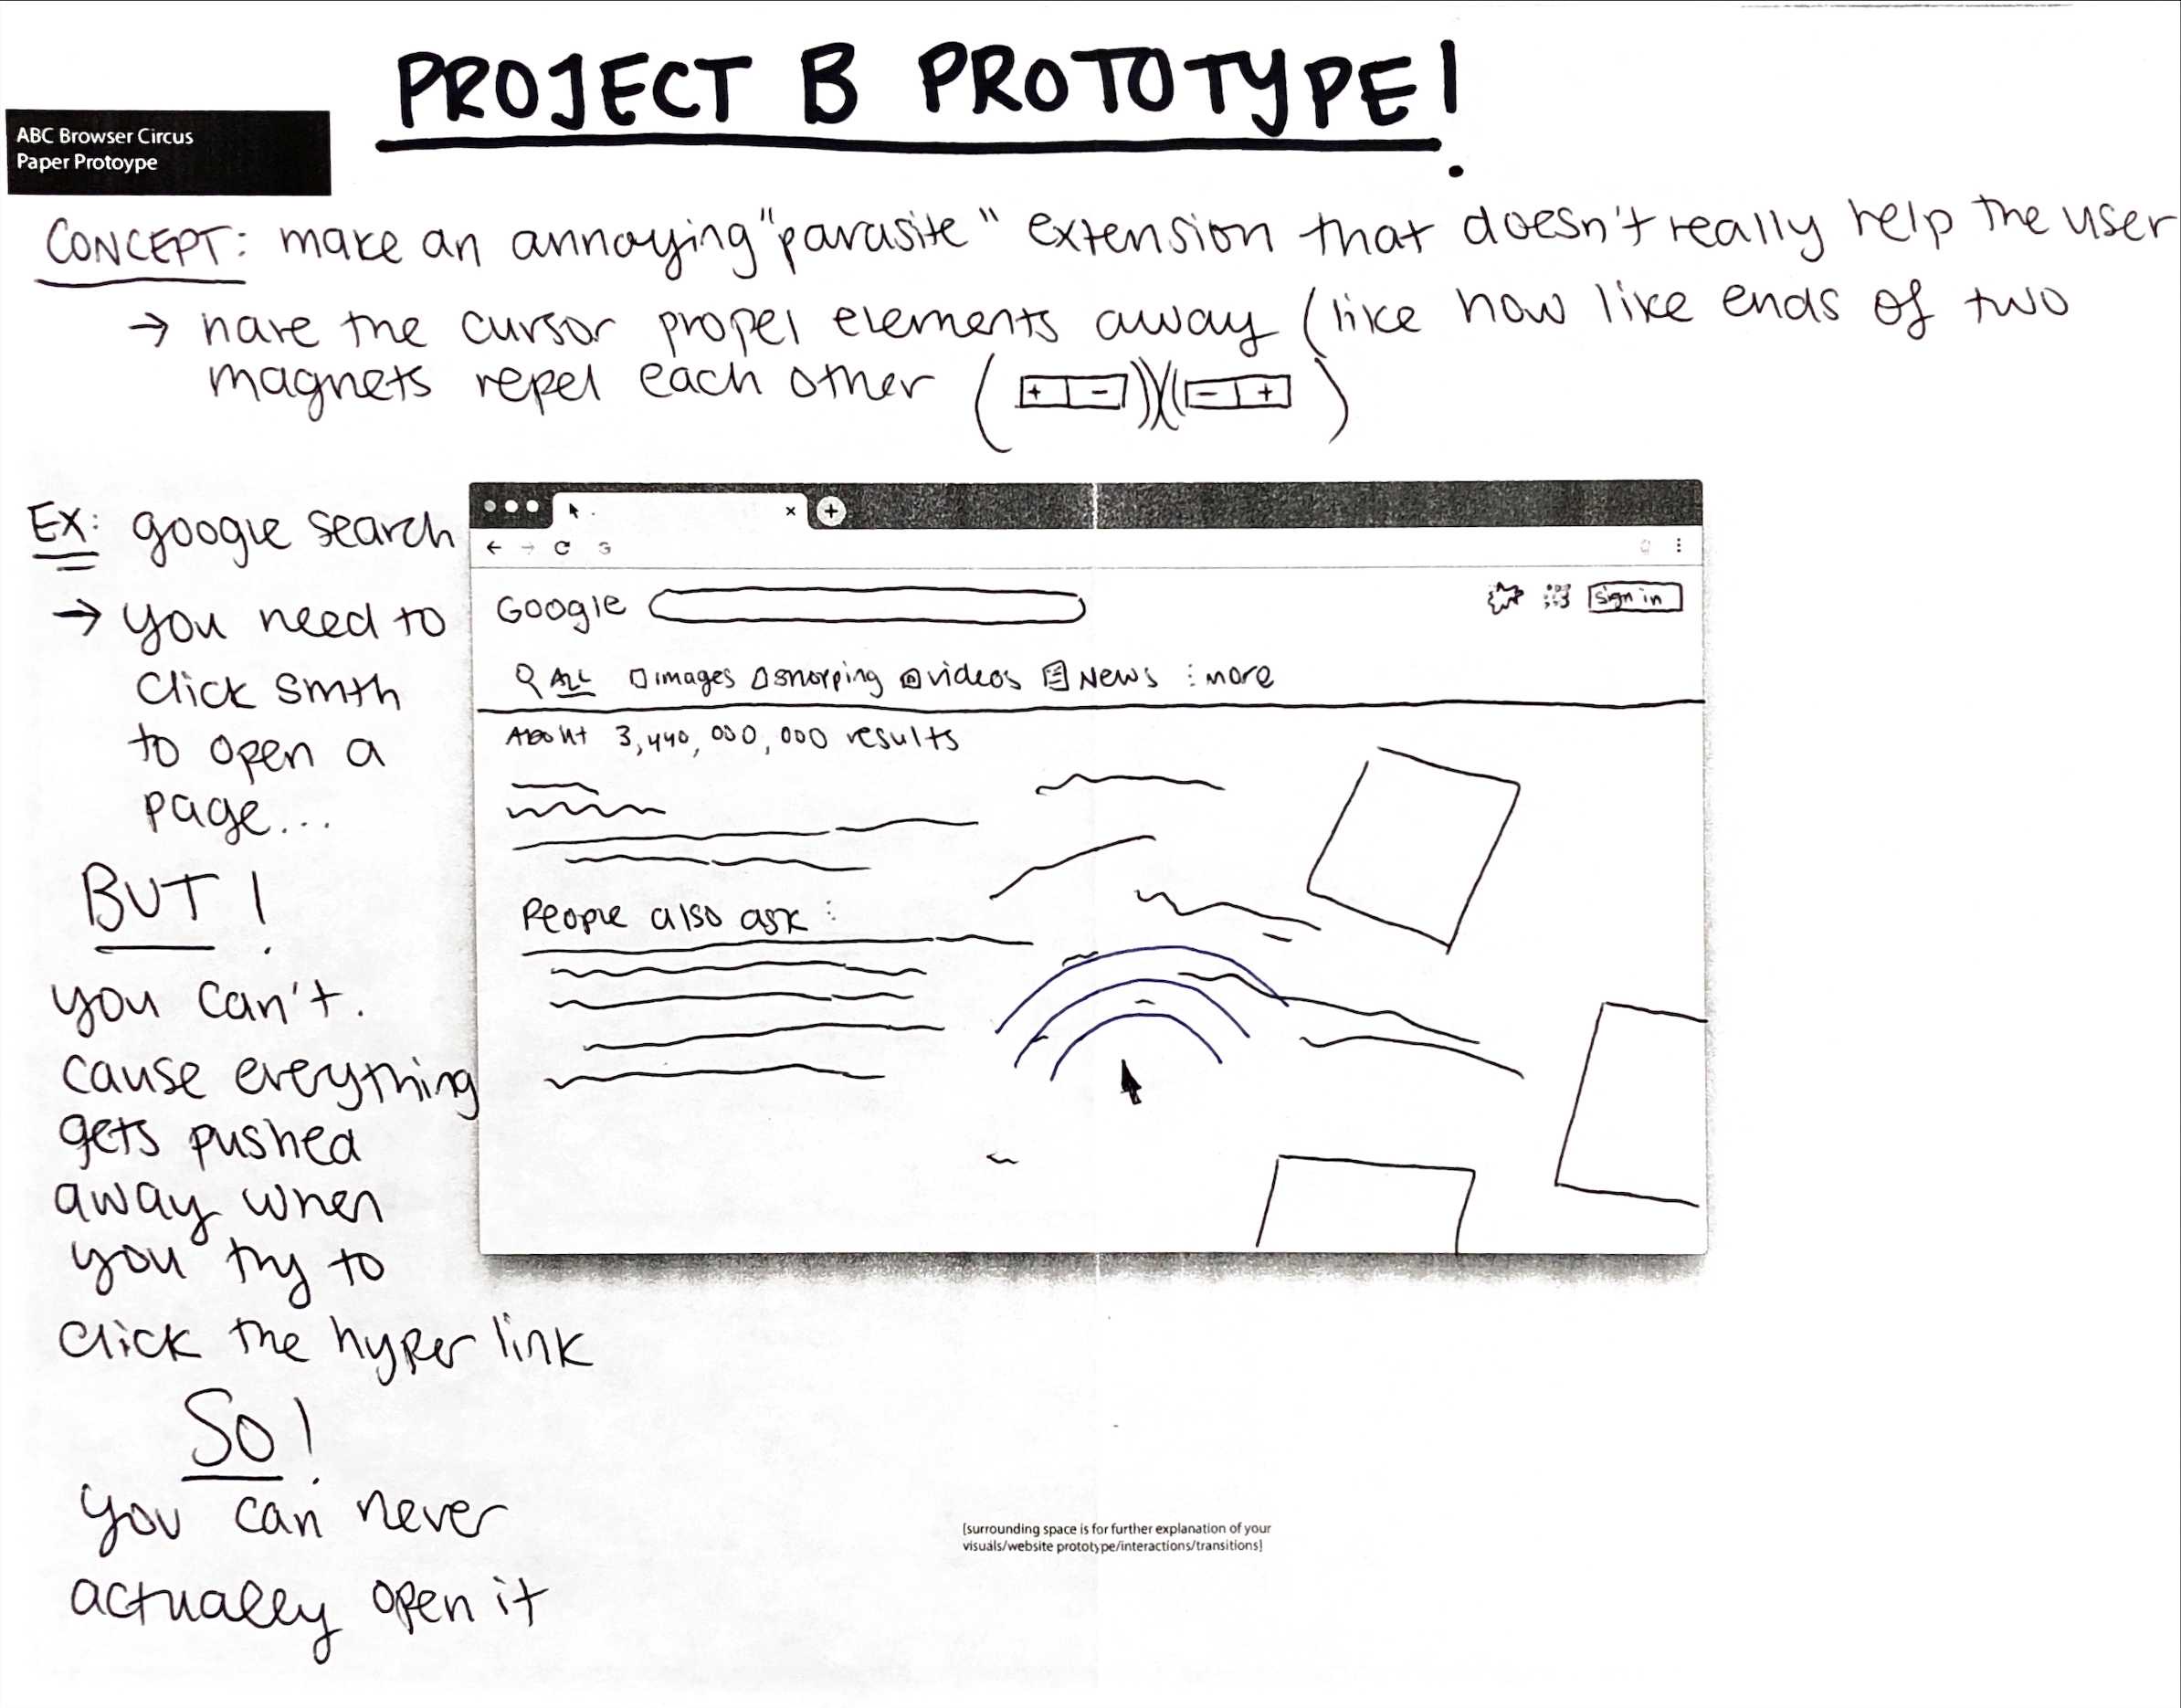 PROJECT B PROTOTYPE!
ABC Browser Circus
Paper Protoype
CONCEPT: make an annoying "parasite" extension that doesn't really help the user
→ have the cursor propel elements away (like how like ends of two
magnets repel each other ( + - - + )
EX: google search
→ you need to
click smth
to open a
page...
BUT!
you can't.
cause everything
gets pushed
away when
you try to
click the hyper link
SO!
you can never
actually open it
Google
sign in
ALL images shopping videos News more
About 3,440,000,000 results
People also ask :
[surrounding space is for further explanation of your
visuals/website prototype/interactions/transitions]